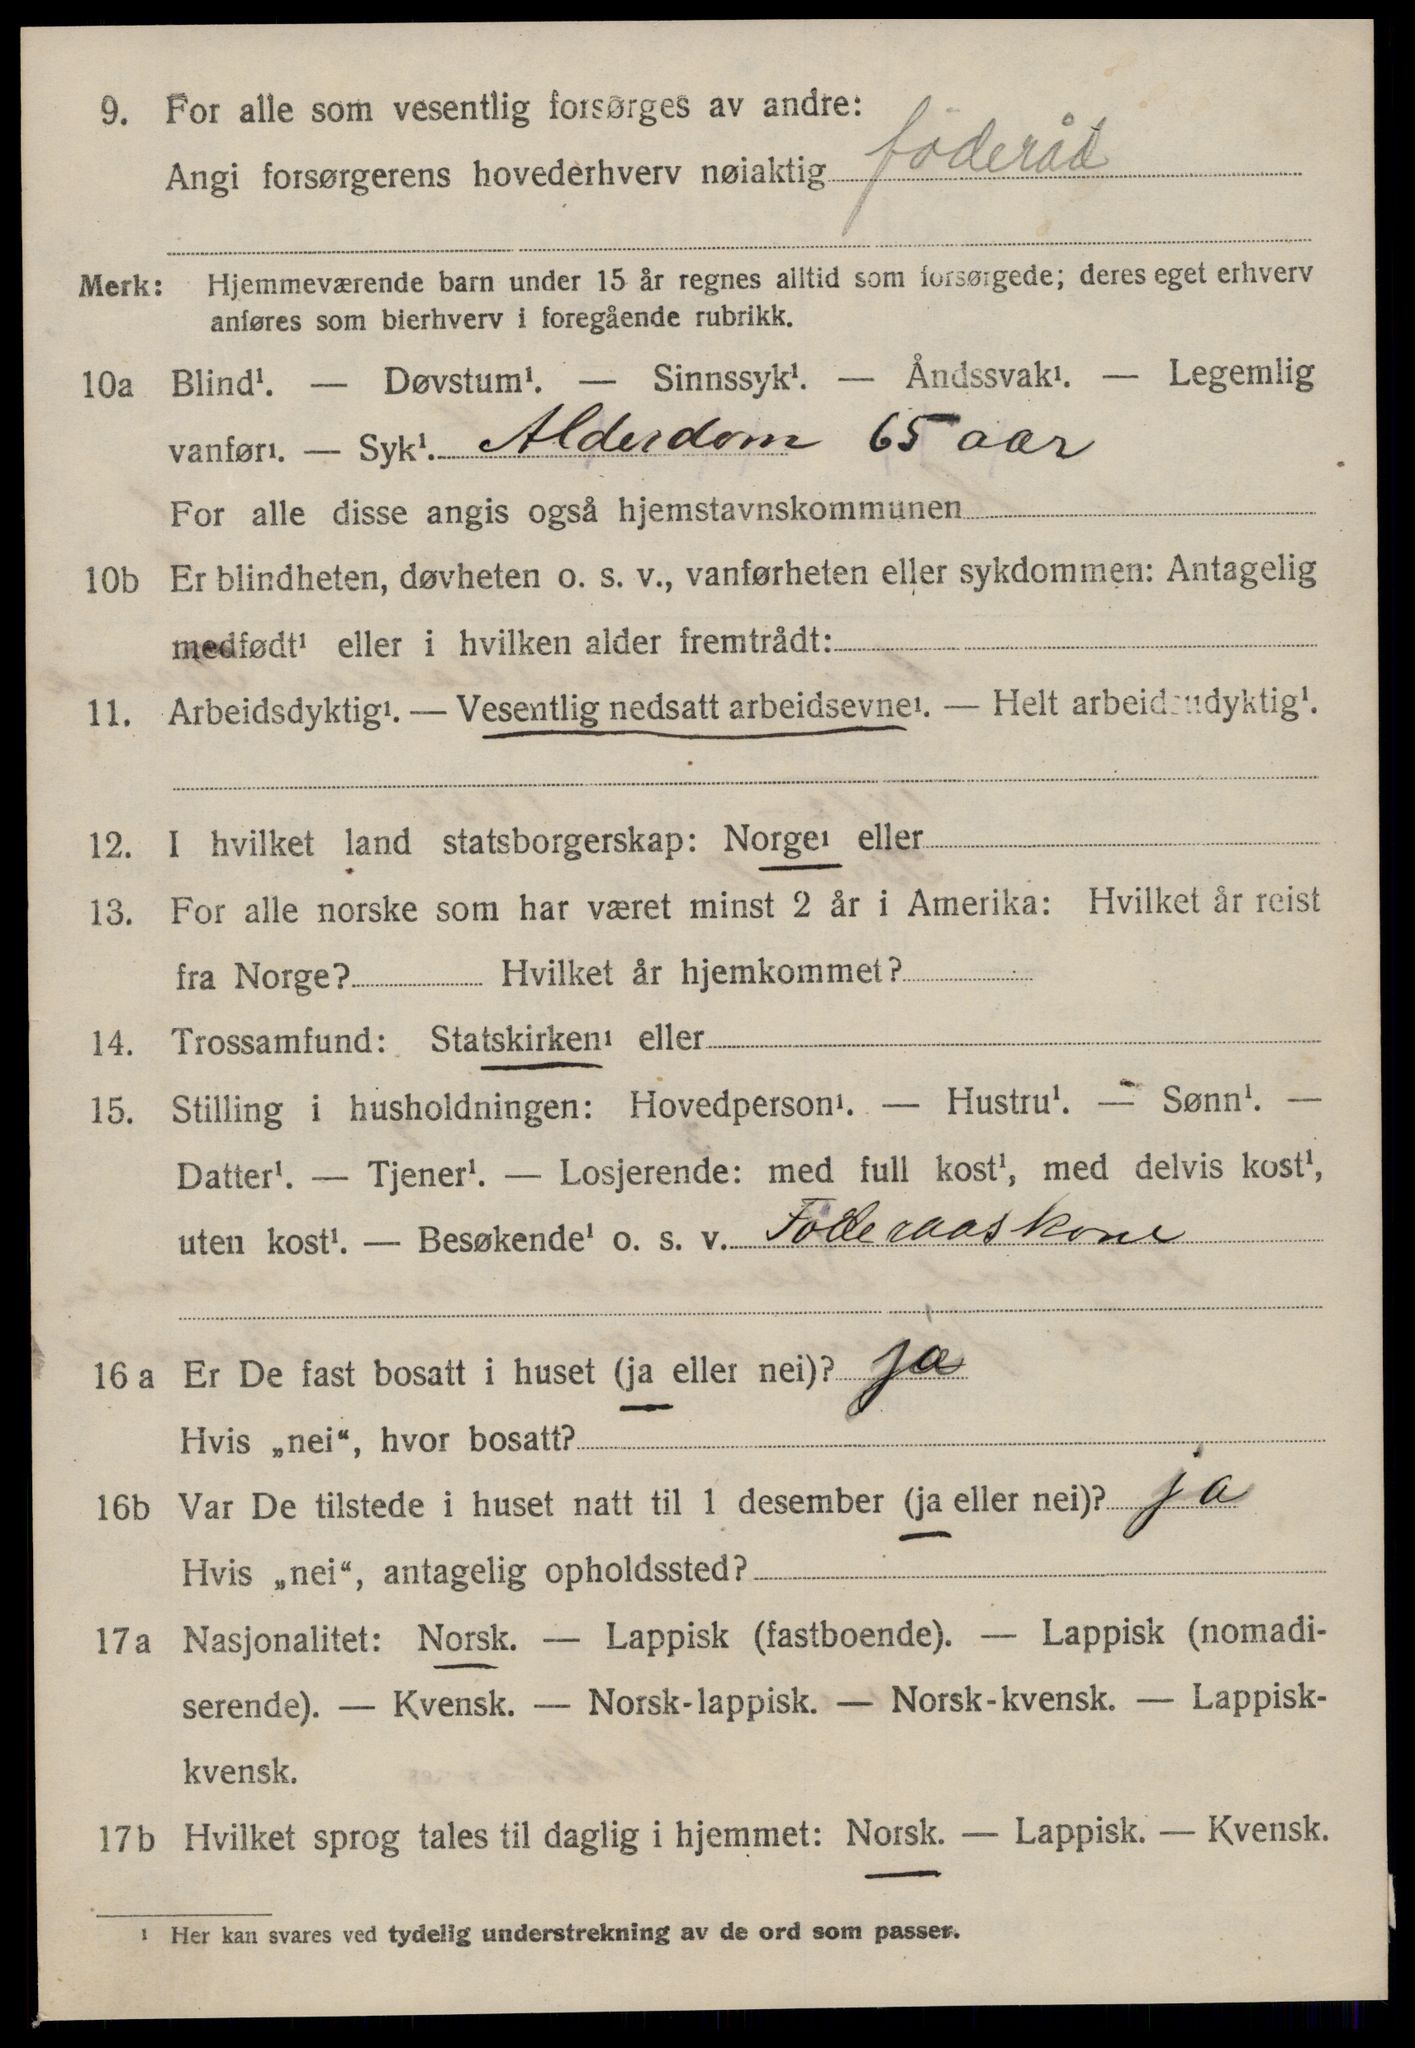 9. For alle som vesentlig forsørges av andre:
Angi forsørgerens hovederhverv nøiaktig föderåd
Merk: Hjemmeværende barn under 15 år regnes alltid som forsørgede; deres eget erhverv
anføres som bierhverv i foregående rubrikk.
10a Blind¹. — Døvstum¹. — Sinnssyk¹. — Åndssvak¹. — Legemlig
vanfør¹. — Syk¹. Alderdom 65 aar
For alle disse angis også hjemstavnskommunen
10b Er blindheten, døvheten o. s. v., vanførheten eller sykdommen: Antagelig
medfødt¹ eller i hvilken alder fremtrådt:
11. Arbeidsdyktig¹. — Vesentlig nedsatt arbeidsevne¹. — Helt arbeidsudyktig¹.
12. I hvilket land statsborgerskap: Norge¹ eller
13. For alle norske som har været minst 2 år i Amerika: Hvilket år reist
fra Norge? Hvilket år hjemkommet?
14. Trossamfund: Statskirken¹ eller
15. Stilling i husholdningen: Hovedperson¹. — Hustru¹. — Sønn¹. —
Datter¹. — Tjener¹. — Losjerende: med full kost¹, med delvis kost¹,
uten kost¹. — Besøkende¹ o. s. v. Föderaaskone
16 a Er De fast bosatt i huset (ja eller nei)? ja
Hvis „nei“, hvor bosatt?
16b Var De tilstede i huset natt til 1 desember (ja eller nei)? ja
Hvis „nei“, antagelig opholdssted?
17a Nasjonalitet: Norsk. — Lappisk (fastboende). — Lappisk (nomadi-
serende). — Kvensk. — Norsk-lappisk. — Norsk-kvensk. — Lappisk-
kvensk.
17b Hvilket sprog tales til daglig i hjemmet: Norsk. — Lappisk. — Kvensk.
¹ Her kan svares ved tydelig understrekning av de ord som passer.